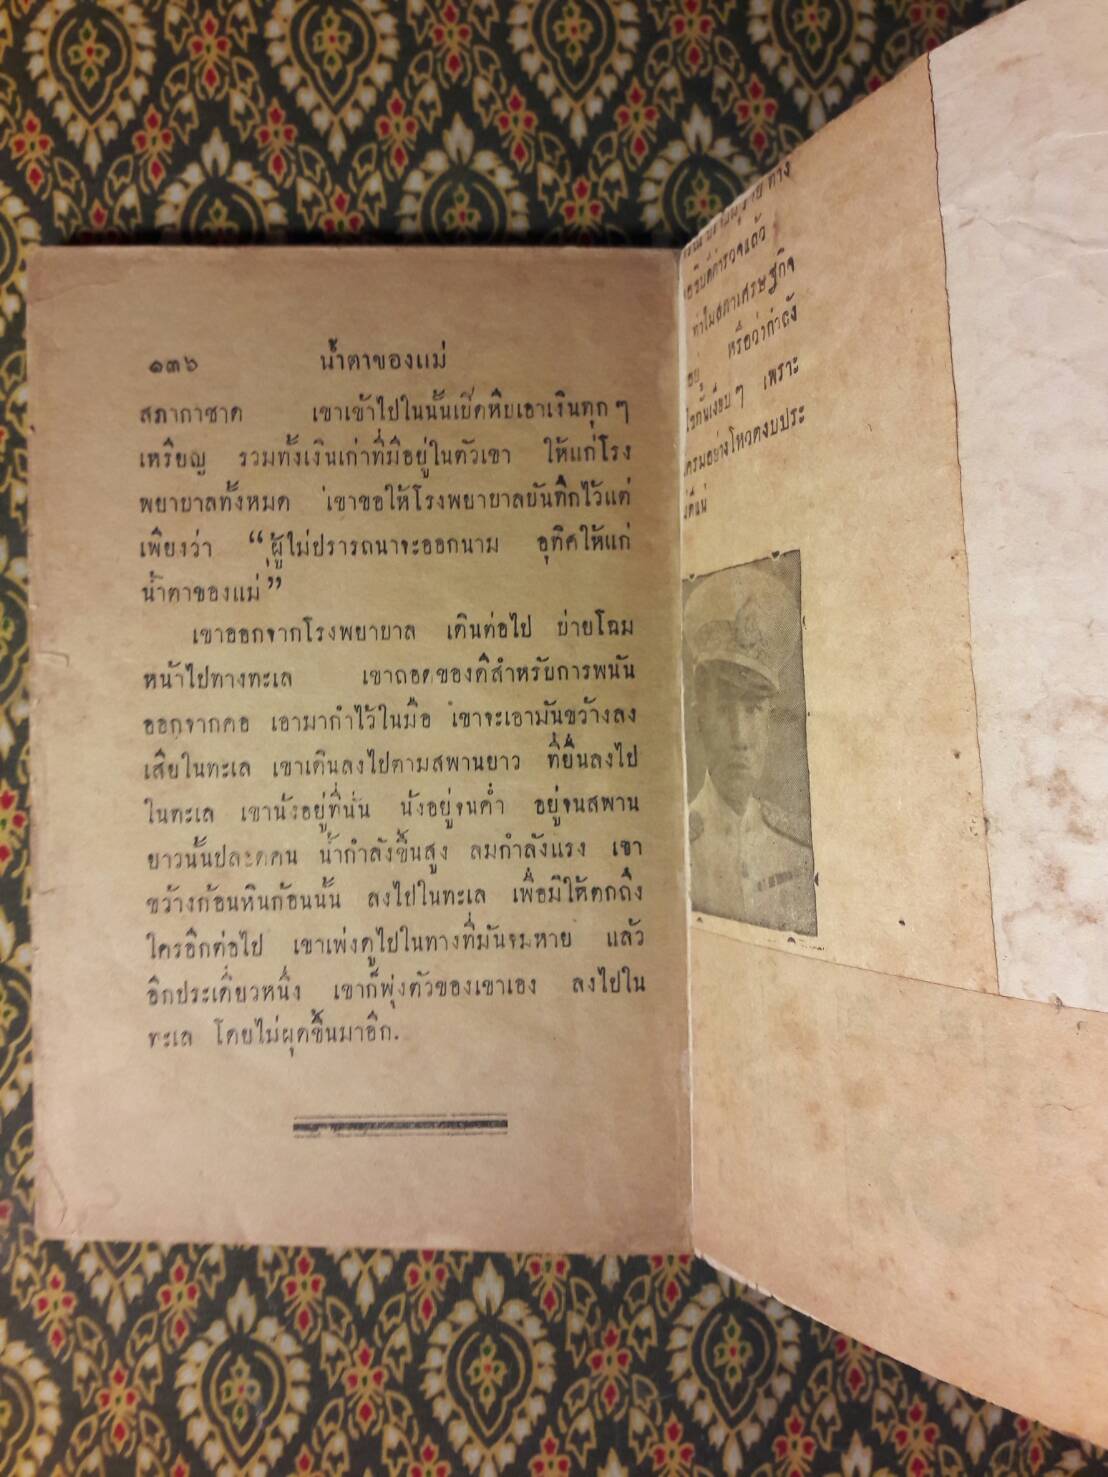 ๑๓๖ น้ำตาของแม่
สภากาชาด เขาเข้าไปในนั้นเปิดหีบเอาเงินทุก ๆ
เหรียญ รวมทั้งเงินเก่าที่มีอยู่ในตัวเขา ให้แก่โรง
พยาบาลทั้งหมด เขาขอให้โรงพยาบาลบันทึกไว้แต่
เพียงว่า “ผู้ไม่ปรารถนาจะออกนาม อุทิศให้แก่
น้ำตาของแม่”
เขาออกจากโรงพยาบาล เดินต่อไป บ่ายโฉม
หน้าไปทางทะเล เขาถอดของดีสำหรับการพนัน
ออกจากคอ เอามากำไว้ในมือ เขาจะเอามันขว้างลง
เสียในทะเล เขาเดินลงไปตามสพานยาว ที่ยื่นลงไป
ในทะเล เขานั่งอยู่ที่นั่น นั่งอยู่จนค่ำ อยู่จนสพาน
ยาวนั้นปลอดคน น้ำกำลังขึ้นสูง ลมกำลังแรง เขา
ขว้างก้อนหินก้อนนั้น ลงไปในทะเล เพื่อมิให้ตกถึง
ใครอีกต่อไป เขาเพ่งดูไปในทางที่มันจมหาย แล้ว
อีกประเดี๋ยวหนึ่ง เขาก็พุ่งตัวของเขาเอง ลงไปใน
ทะเล โดยไม่ผุดขึ้นมาอีก.
ทาง
ตำรวจแล้ว
ทำไมสภาเศรษฐกิจ
หรือว่ากำลัง
เงียบ ๆ เพราะ
อย่างโหวตงบประ